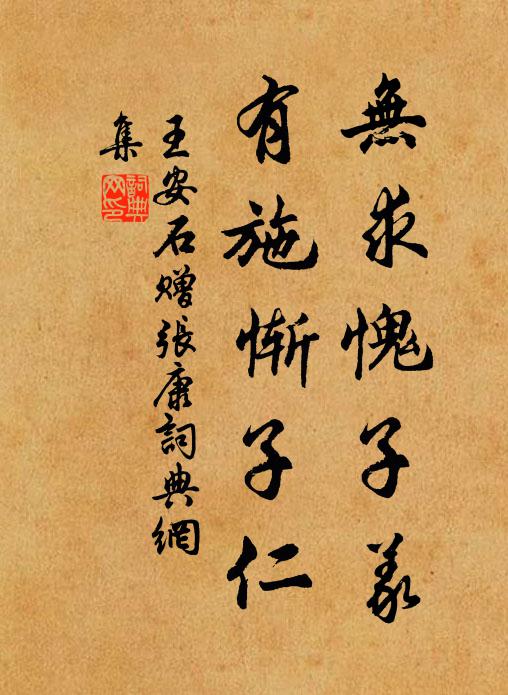 無求愧子義
有施慚子仁
王安石贈張康詞典網
集
詞典
网印